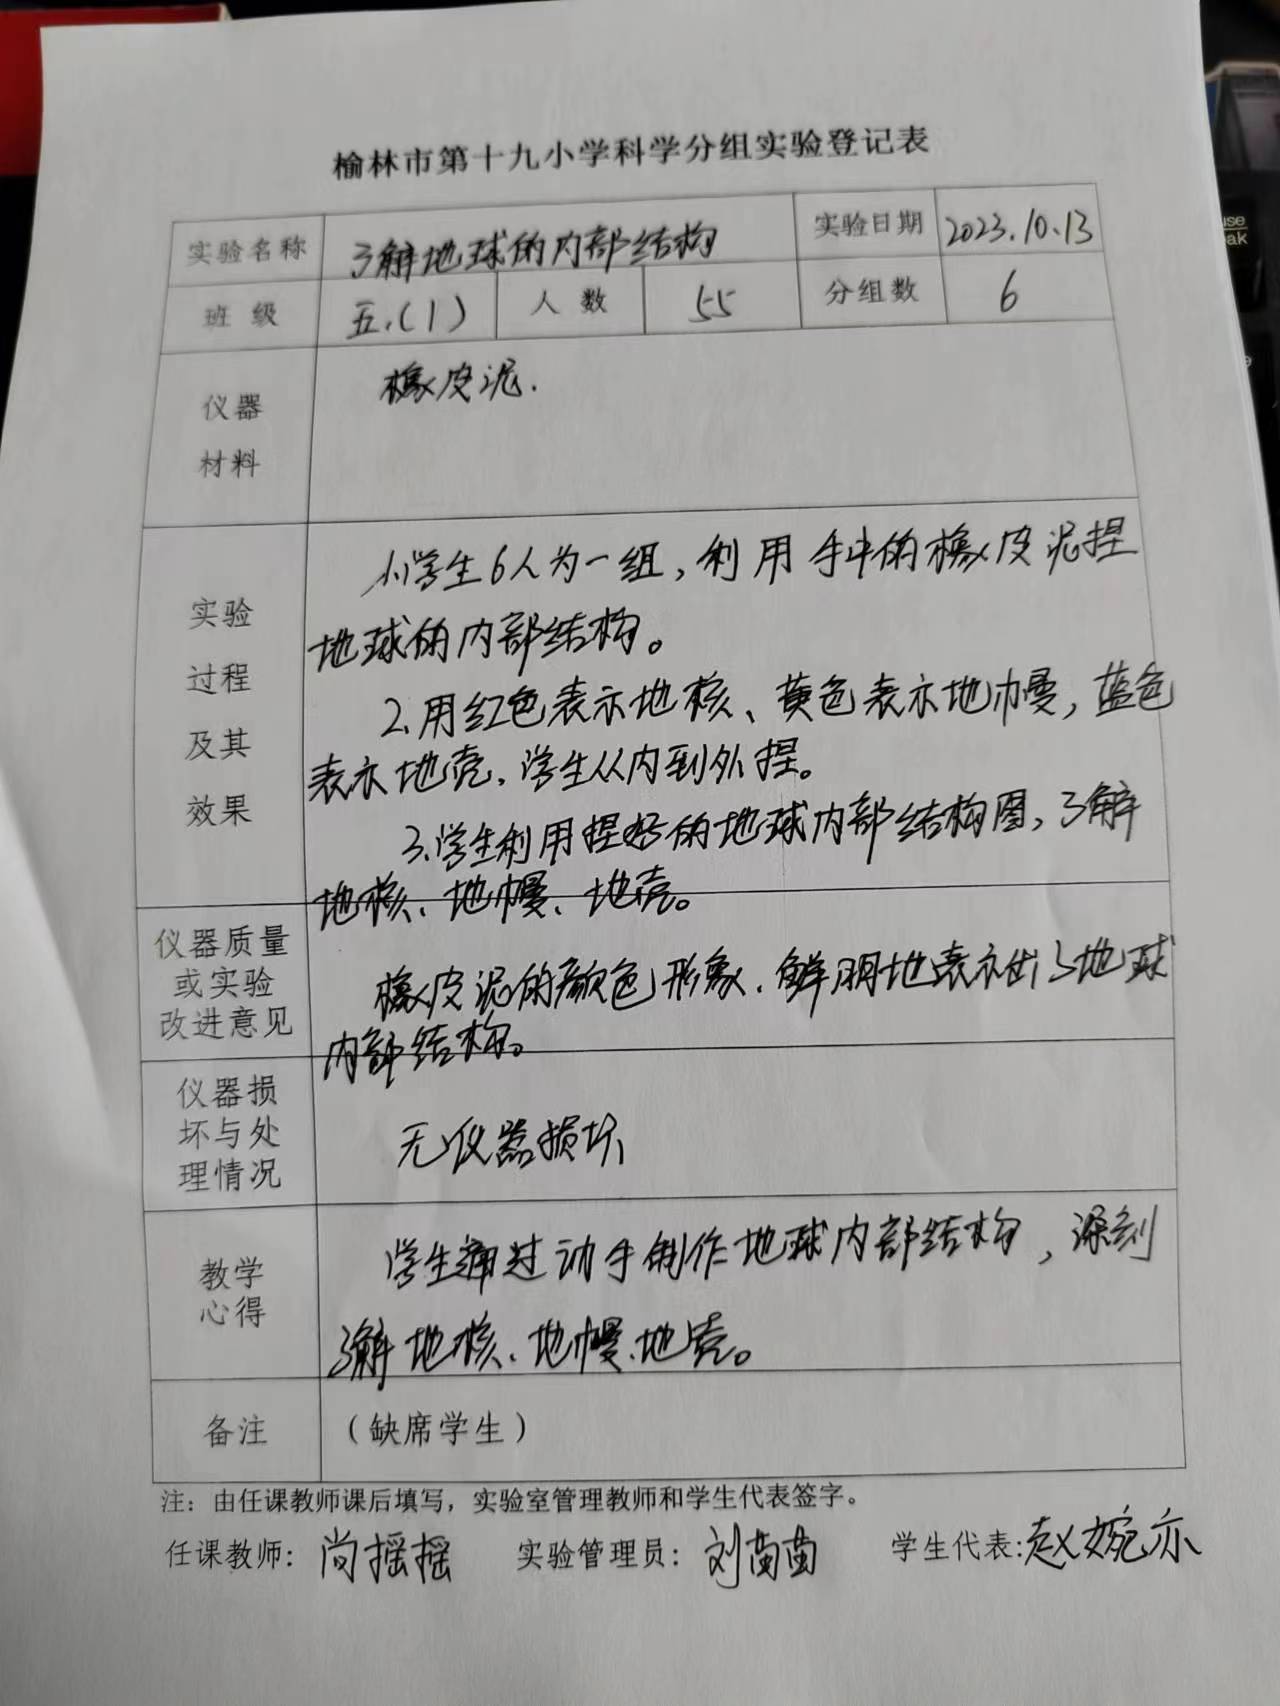 榆林市第十九小学科学分组实验登记表
实验名称 了解地球的内部结构 实验日期 2023.10.13
班 级 五.(1) 人 数 55 分组数 6
仪器
材料
橡皮泥.
实验
过程
及其
效果
1.学生6人为一组,利用手中的橡皮泥捏
地球的内部结构。
2.用红色表示地核、黄色表示地幔,蓝色
表示地壳,学生从内到外捏。
3.学生利用捏好的地球内部结构图,了解
地核、地幔、地壳。
仪器质量
或实验
改进意见
橡皮泥的颜色形象.鲜明地表示出了地球
内部结构。
仪器损
坏与处
理情况
无仪器损坏
教学
心得
学生通过动手制作地球内部结构,深刻
了解地核、地幔、地壳。
备注 (缺席学生)
注:由任课教师课后填写,实验室管理教师和学生代表签字。
任课教师:尚摇摇 实验管理员:刘苗苗 学生代表:赵婉亦
use
eak